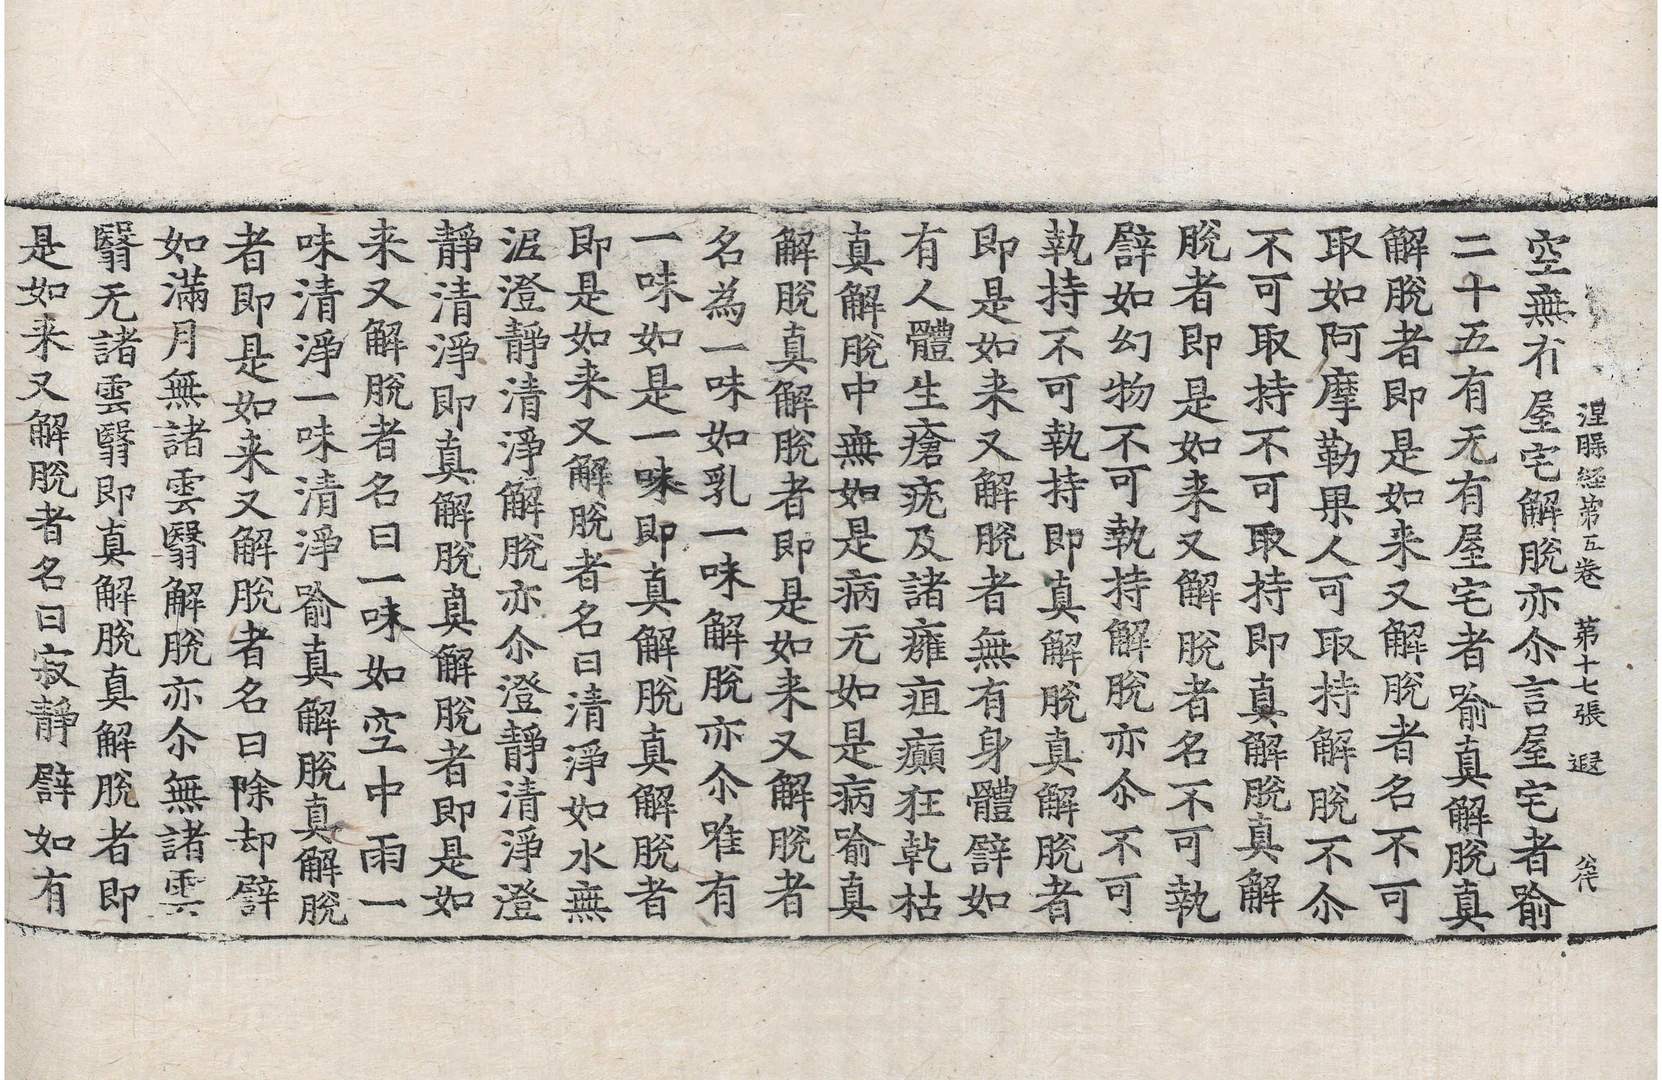 涅槃経第五卷 第十七張 遐
空無有屋宅解脫亦尒言屋宅者喻
二十五有无有屋宅者喻真解脫真
解脫者即是如来又解脫者名不可
取如阿摩勒果人可取持解脫不尒
不可取持不可取持即真解脫真解
脫者即是如来又解脫者名不可執
譬如幻物不可執持解脫亦尒不可
執持不可執持即真解脫真解脫者
即是如来又解脫者無有身體譬如
有人體生瘡疣及諸癰疽癲狂乾枯
真解脫中無如是病无如是病喻真
解脫真解脫者即是如来又解脫者
名為一味如乳一味解脫亦尒唯有
一味如是一味即真解脫真解脫者
即是如来又解脫者名曰清淨如水無
泥澄靜清淨解脫亦尒澄靜清淨澄
靜清淨即真解脫真解脫者即是如
来又解脫者名曰一味如空中雨一
味清淨一味清淨喻真解脫真解脫
者即是如来又解脫者名曰除却譬
如滿月無諸雲翳解脫亦尒無諸雲
翳无諸雲翳即真解脫真解脫者即
是如来又解脫者名曰寂靜譬如有